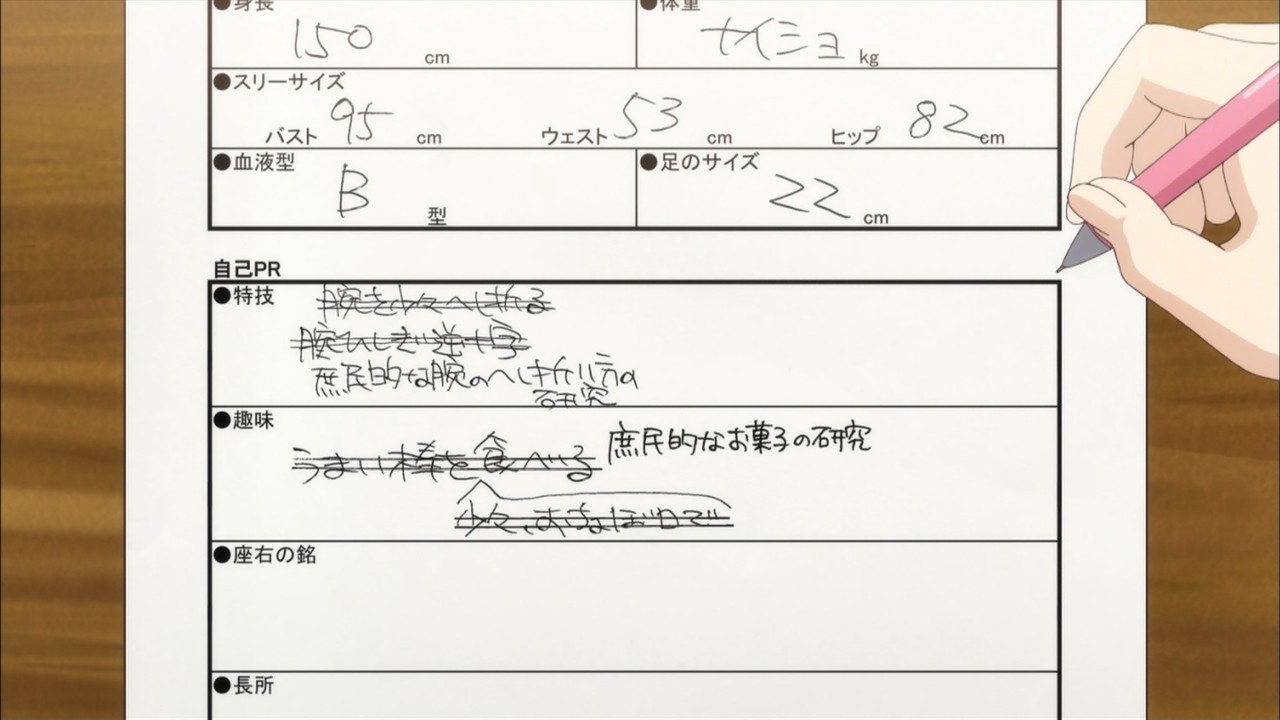 ●身長 ●体重
150 cm ナイショ kg
●スリーサイズ
バスト 95 cm ウェスト 53 cm ヒップ 82 cm
●血液型 ●足のサイズ
B 型 22 cm
自己PR
●特技 腕を少々へし折る
腕ひしぎ逆十字
庶民的な腕のへし折り方の
研究
●趣味
うまい棒を食べる 庶民的なお菓子の研究
少々、おちょぼ口で
●座右の銘
●長所